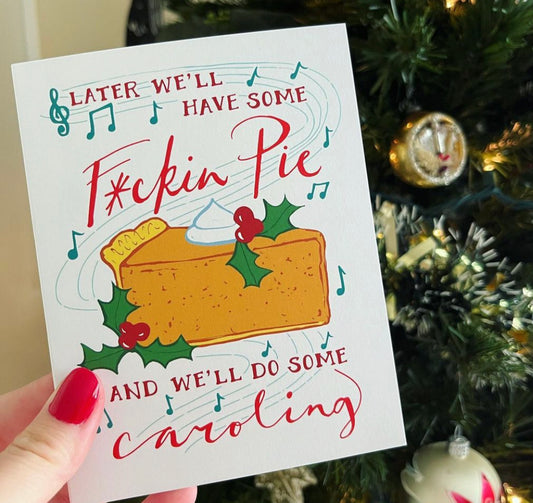 LATER WE'LL
HAVE SOME
F*ckin Pie
AND WE'LL DO SOME
caroling